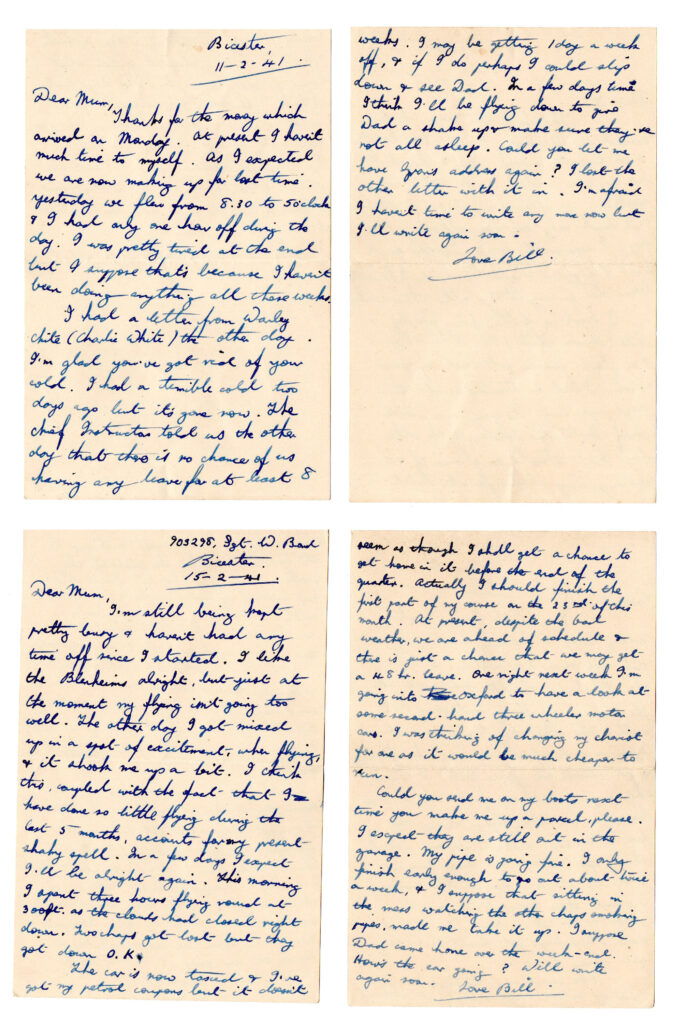 Bicester,
11-2-41.
Dear Mum,
Thanks for the money which
arrived on Monday. At present I haven't
much time to myself. As I expected
we are now making up for lost time.
Yesterday we flew from 8.30 to 5 o'clock
& I had only one hour off during the
day. I was pretty tired at the end
but I suppose that's because I haven't
been doing anything all these weeks.
I had a letter from Warley
chite (Charlie White) the other day.
I'm glad you've got rid of your
cold. I had a terrible cold two
days ago but it's gone now. The
Chief Instructor told us the other
day that there is no chance of us
having any leave for at least 8
weeks. I may be getting 1 day a week
off, & if I do perhaps I could slip
down & see Dad. In a few days time
I think I'll be flying down to give
Dad a shake up & make sure they're
not all asleep. Could you let me
have address again? I lost the
other letter with it in. I'm afraid
I haven't time to write any more now but
I'll write again soon.
Love Bill.
903298, Sgt. W.
Bicester.
15-2-41.
Dear Mum,
I'm still being kept
pretty busy & haven't had any
time off since I started. I like
the Blenheims alright, but just at
the moment my flying isn't going too
well. The other day I got mixed
up in a spot of excitement, when flying,
& it shook me up a bit. I think
this, coupled with the fact that I
have done so little flying during the
last 5 months, accounts for my present
shaky spell. In a few days I expect
I'll be alright again. This morning
I spent three hours flying round at
300ft. as the clouds had closed right
down. Two chaps got lost but they
got down O.K.
The car is now taxed & I've
got my petrol coupons but it doesn't
seem as though I shall get a chance to
get home in it before the end of the
quarter. Actually I should finish the
first part of my course on the 23rd of this
month. At present, despite the bad
weather, we are ahead of schedule &
there is just a chance that we may get
a 48 hr. leave. One night next week I'm
going into Oxford to have a look at
some second-hand three wheeler motor
cars. I was thinking of changing my chariot
for one as it would be much cheaper to
run.
Could you send me on my boots next
time you make me up a parcel, please.
I expect they are still out in the
garage. My pipe is going fine. I only
finish early enough to go out about twice
a week, & I suppose that sitting in
the mess watching the other chaps smoking
pipes, made me take it up. I suppose
Dad came home over the week-end.
How's the car going? Will write
again soon. Love Bill.